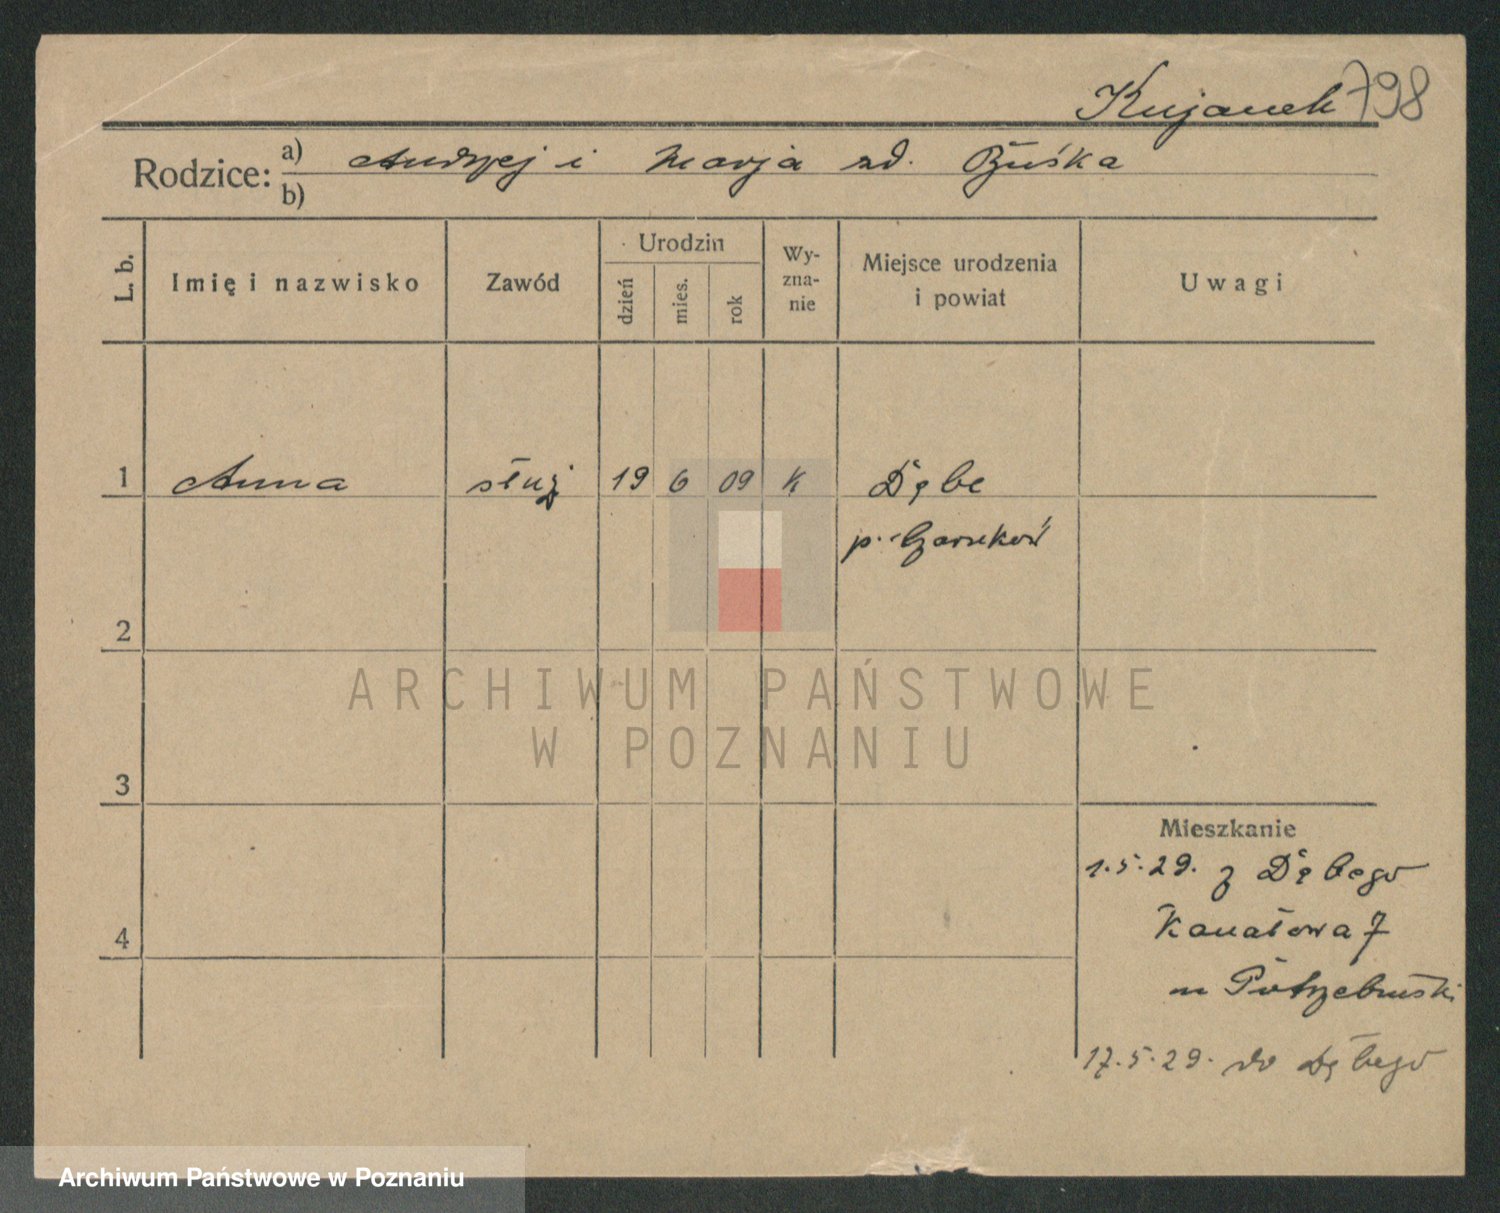 Kujanek 798
Rodzice: a) Andrzej i Marja zd. Buśka
b)
L. b.
Imię i nazwisko
Zawód
Urodzin
dzień
mies.
rok
Wy-
zna-
nie
Miejsce urodzenia
i powiat
Uwagi
1 Anna służ 19 6 09 k Dębe
p. Czarnków
2
3
4
Mieszkanie
1.5.29. z Dębego
Kanałowa 7
17.5.29. do Dębego
ARCHIWUM PAŃSTWOWE
W POZNANIU
Archiwum Państwowe w Poznaniu